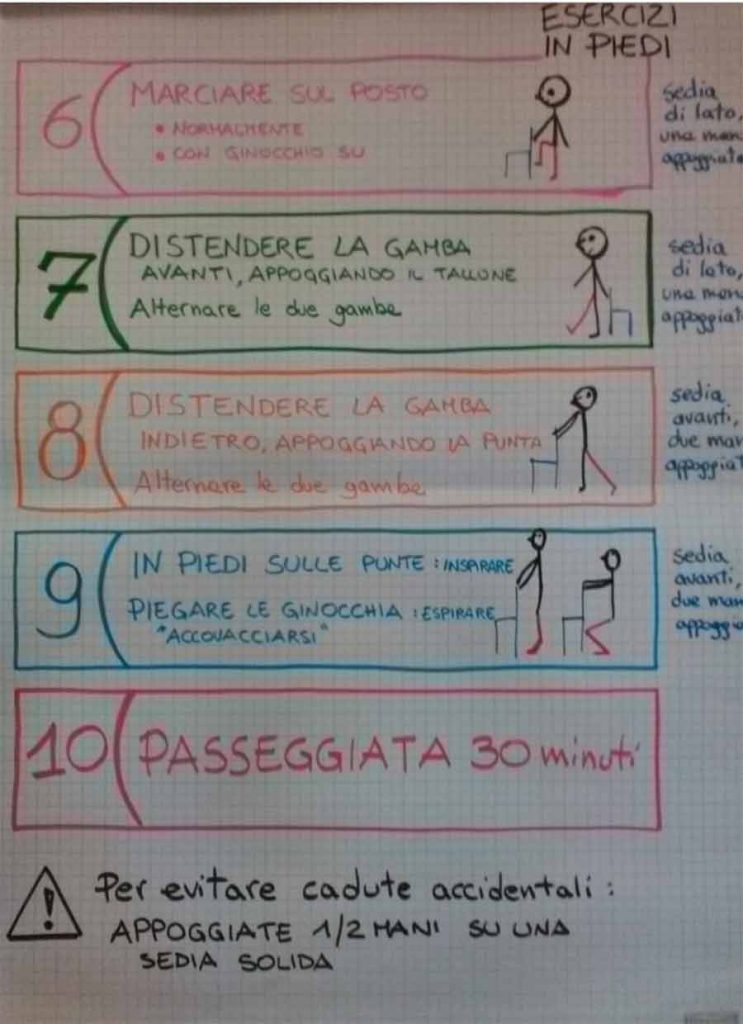 ESERCIZI
IN PIEDI
6
MARCIARE SUL POSTO
• NORMALMENTE
• CON GINOCCHIO SU
sedia
di lato,
una
7
DISTENDERE LA GAMBA
AVANTI, APPOGGIANDO IL TALLONE
Alternare le due gambe
sedia
di lato,
una
8
DISTENDERE LA GAMBA
INDIETRO, APPOGGIANDO LA PUNTA
Alternare le due gambe
sedia
avanti,
due
9
IN PIEDI SULLE PUNTE : INSPIRARE
PIEGARE LE GINOCCHIA : ESPIRARE
"ACCOVACCIARSI"
sedia
avanti,
due
10
PASSEGGIATA 30 minuti
! Per evitare cadute accidentali :
APPOGGIATE 1/2 MANI SU UNA
SEDIA SOLIDA